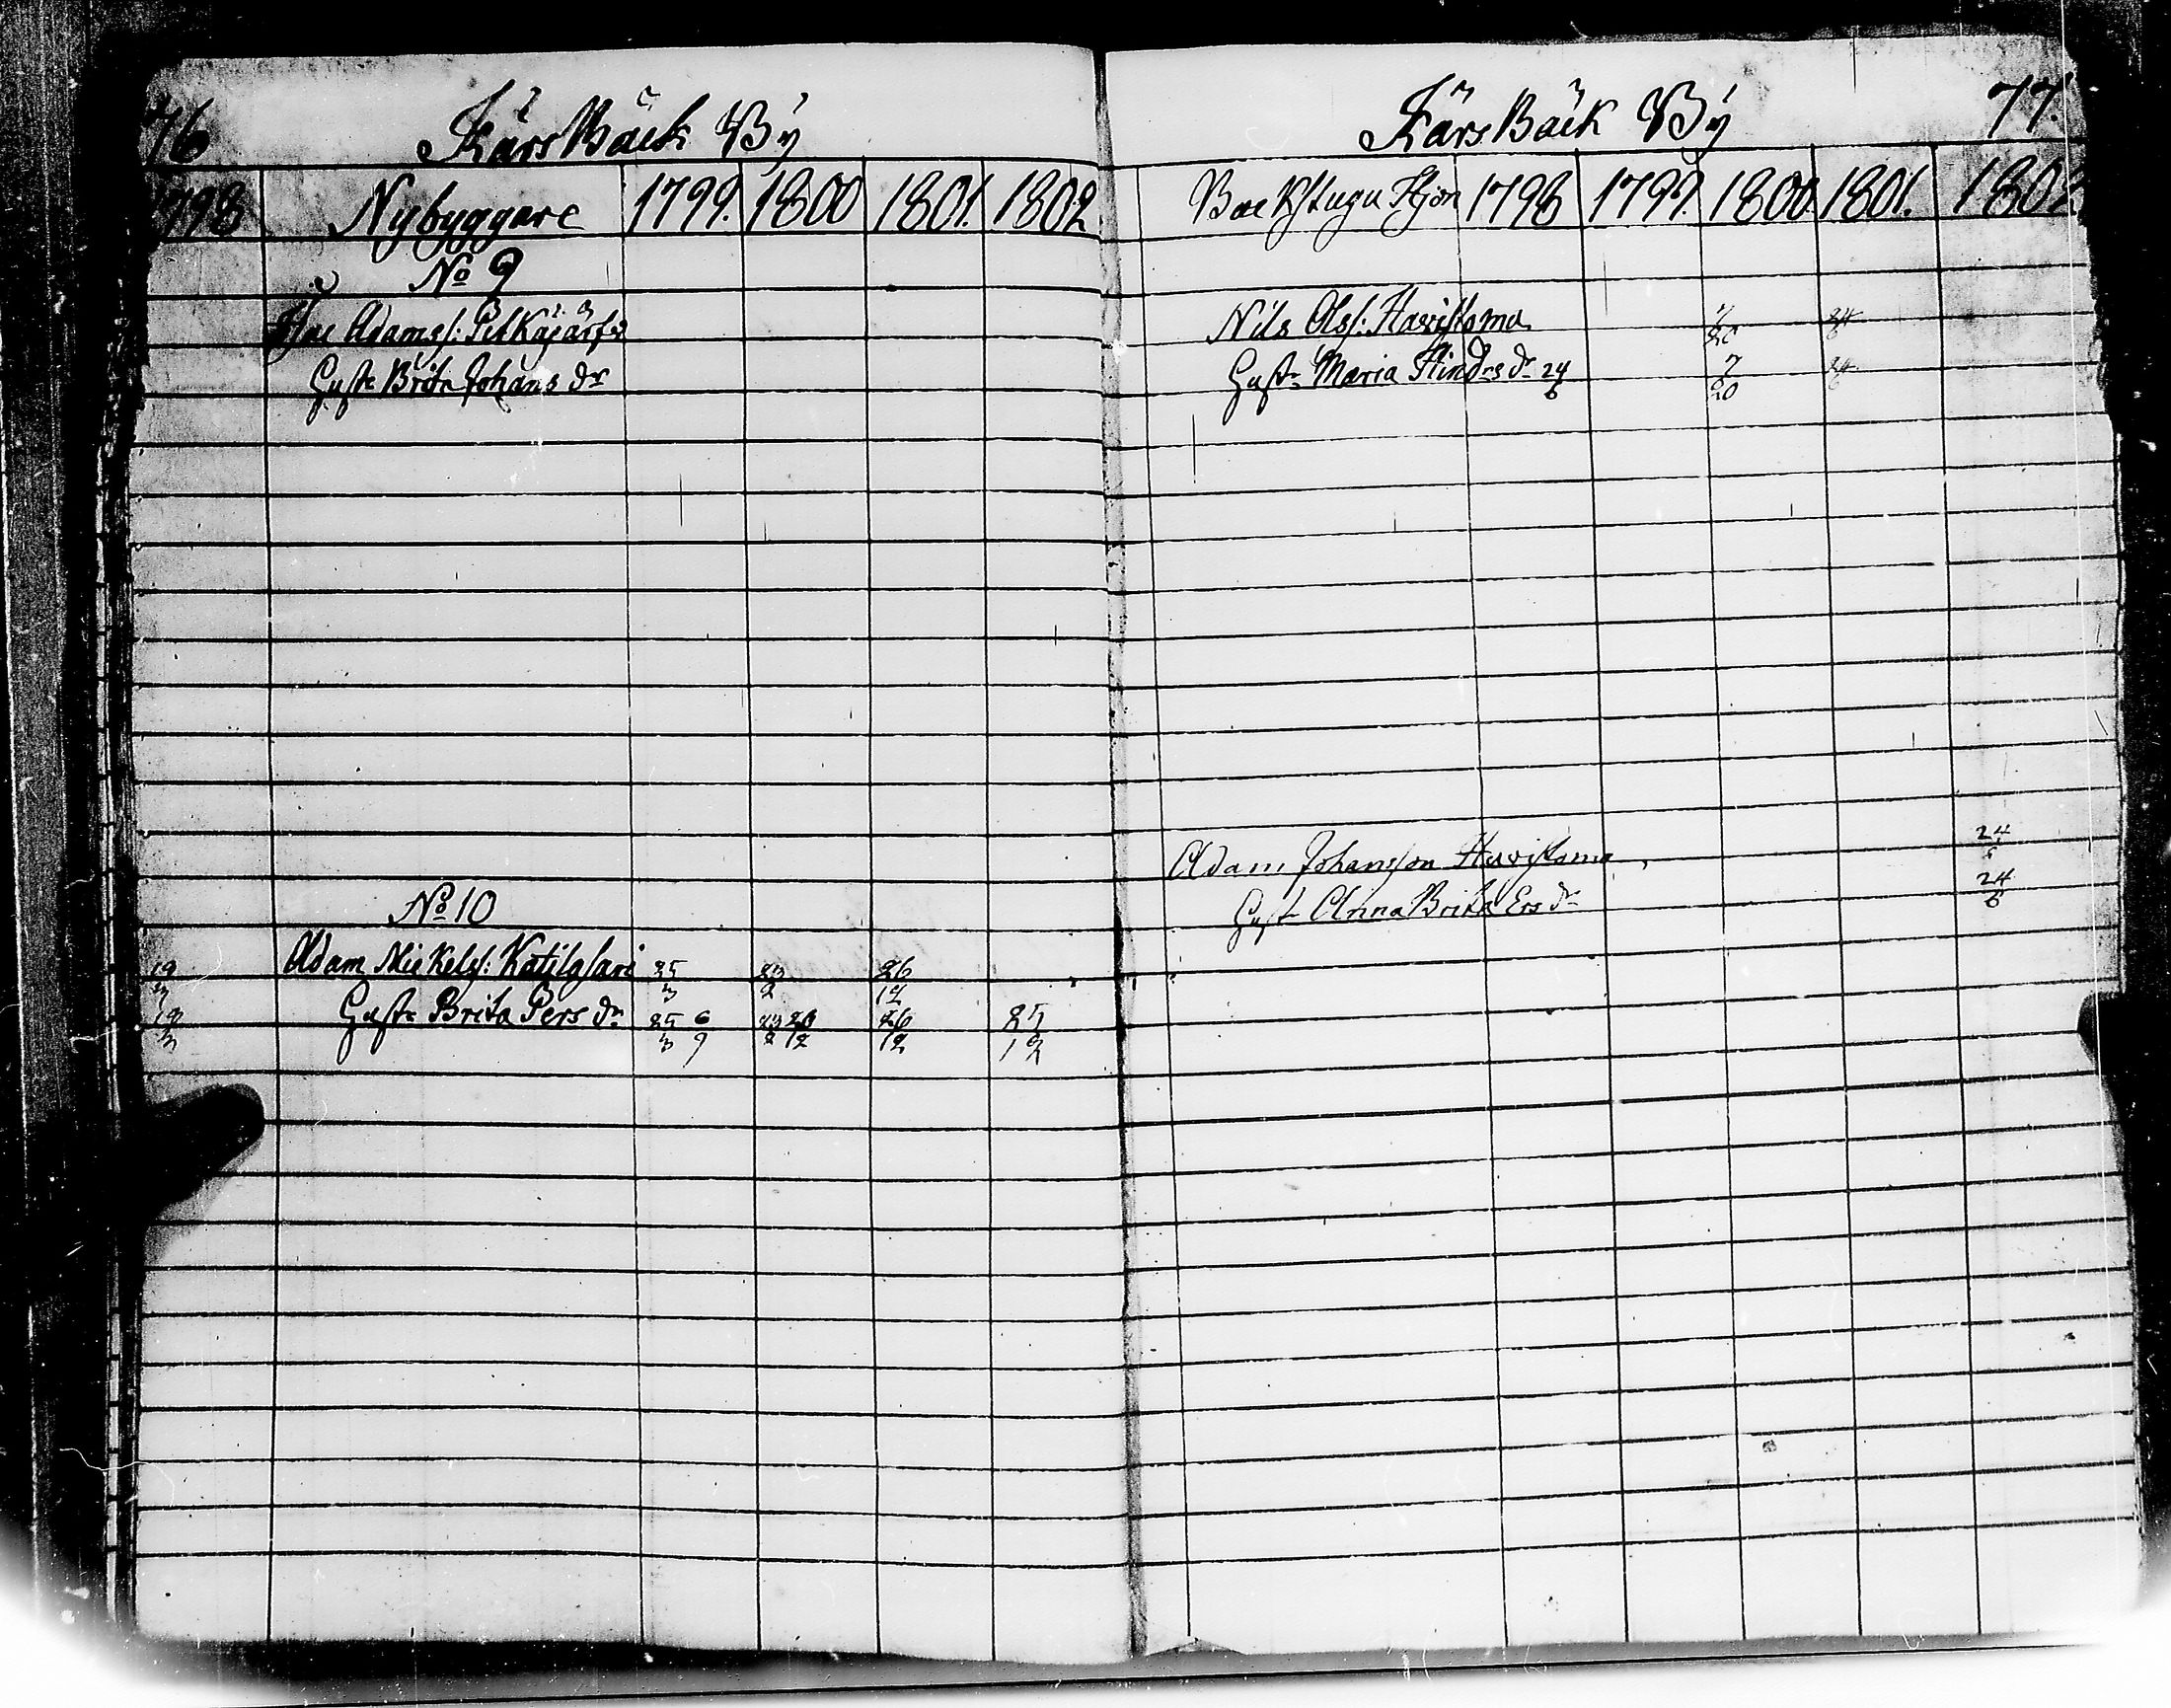 76 KärsBäck Bÿ
1798 Nybyggare 1799. 1800 1801. 1802
No 9
Isac Adamss: Pitkäjärfvi
Hust. Brita Johans dr
No 10
19/3 Adam Mickelss: Katilasari 25/3 23/2 26/12
19/3 Hust. Brita Pers dr 25/3 6/9 23/2 20/12 26/12 25/12
KärsBäck Bÿ 77.
Backstugu Hjon 1798 1799. 1800. 1801. 1802
Nils Olss: Haviskoma 7/20 24/6
Hust. Maria Hindrs dr 24/6 7/20 24/6
Adam Johansson Haviskoma 24/6
Hust. Anna Brita Ers dr 24/6